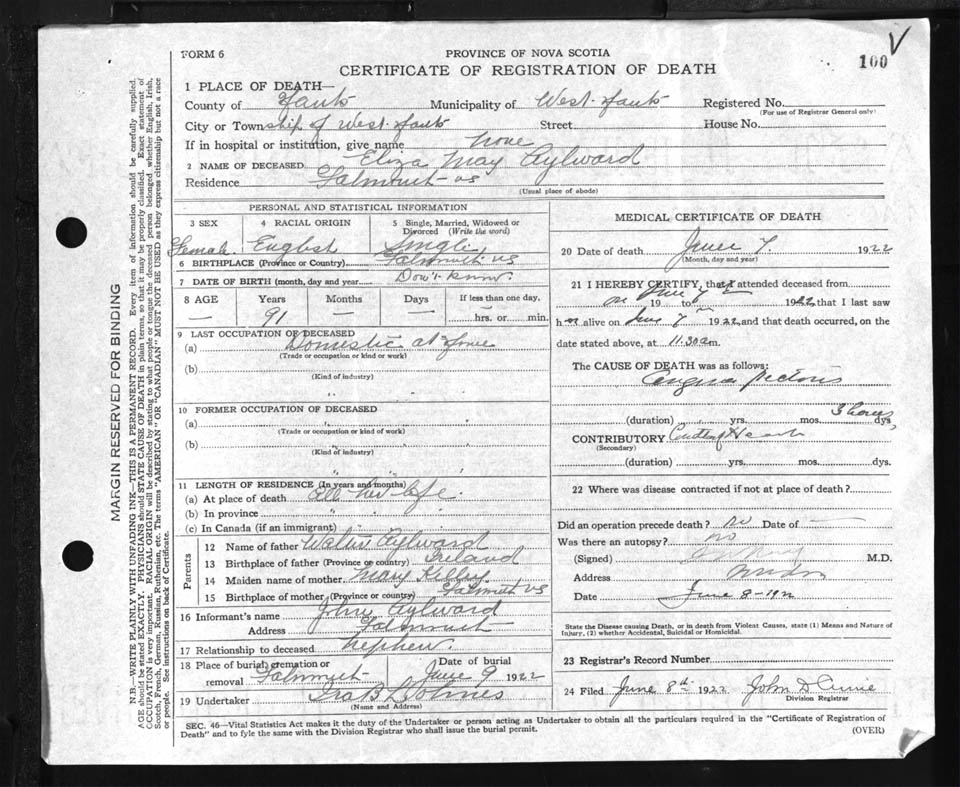 FORM 6
PROVINCE OF NOVA SCOTIA
CERTIFICATE OF REGISTRATION OF DEATH
100
1 PLACE OF DEATH—
County of Hants Municipality of West Hants Registered No.
(For use of Registrar General only)
City or Township of West Hants Street House No.
If in hospital or institution, give name None
2 NAME OF DECEASED Eliza May Aylward
Residence Falmouth NS
(Usual place of abode)
PERSONAL AND STATISTICAL INFORMATION
3 SEX 4 RACIAL ORIGIN 5 Single, Married, Widowed or Divorced (Write the word)
Female. English Single
6 BIRTHPLACE (Province or Country) Falmouth NS
7 DATE OF BIRTH (month, day and year) Don't know
8 AGE Years Months Days If less than one day,
— 91 — — hrs. or min.
9 LAST OCCUPATION OF DECEASED
(a) Domestic at Home
(Trade or occupation or kind of work)
(b)
(Kind of industry)
10 FORMER OCCUPATION OF DECEASED
(a)
(Trade or occupation or kind of work)
(b)
(Kind of industry)
11 LENGTH OF RESIDENCE (In years and months)
(a) At place of death All her life.
(b) In province " " "
(c) In Canada (if an immigrant)
Parents
12 Name of father Walter Aylward
13 Birthplace of father (Province or country) Ireland
14 Maiden name of mother Mary
15 Birthplace of mother (Province or country) Falmouth NS
16 Informant's name John Aylward
Address Falmouth
17 Relationship to deceased Nephew.
18 Place of burial, cremation or removal Falmouth Date of burial June 9 1922
19 Undertaker Ira B
(Name and Address)
MEDICAL CERTIFICATE OF DEATH
20 Date of death June 7. 1922
(Month, day and year)
21 I HEREBY CERTIFY, that I attended deceased from
on June 7 19 to 1922, that I last saw
h er alive on June 7 1922, and that death occurred, on the
date stated above, at 11.30 a m.
The CAUSE OF DEATH was as follows:
Angina Pectoris
(duration) yrs. mos. 3 hours dys.
CONTRIBUTORY Heart
(Secondary)
(duration) yrs. mos. dys.
22 Where was disease contracted if not at place of death?
Did an operation precede death? no Date of —
Was there an autopsy? no
(Signed) M.D.
Address Windsor
Date June 8-1922
State the Disease causing Death, or in death from Violent Causes, state (1) Means and Nature of
Injury, (2) whether Accidental, Suicidal or Homicidal.
23 Registrar's Record Number
24 Filed June 8th 1922 John D
Division Registrar
SEC. 46—Vital Statistics Act makes it the duty of the Undertaker or person acting as Undertaker to obtain all the particulars required in the "Certificate of Registration of
Death" and to fyle the same with the Division Registrar who shall issue the burial permit.
(OVER)
MARGIN RESERVED FOR BINDING
N.B.—WRITE PLAINLY WITH UNFADING INK—THIS IS A PERMANENT RECORD. Every item of information should be carefully supplied.
AGE should be stated EXACTLY. PHYSICIANS should STATE CAUSE OF DEATH in plain terms, so that it may be properly classified. Exact statement of
OCCUPATION is very important. RACIAL ORIGIN will be described by stating to what people or tongue the deceased person belonged whether English, Irish,
Scotch, French, German, Russian, Ruthenian, etc. The terms "AMERICAN" OR "CANADIAN" MUST NOT BE USED as they express citizenship but not a race
or people. See instructions on back of Certificate.